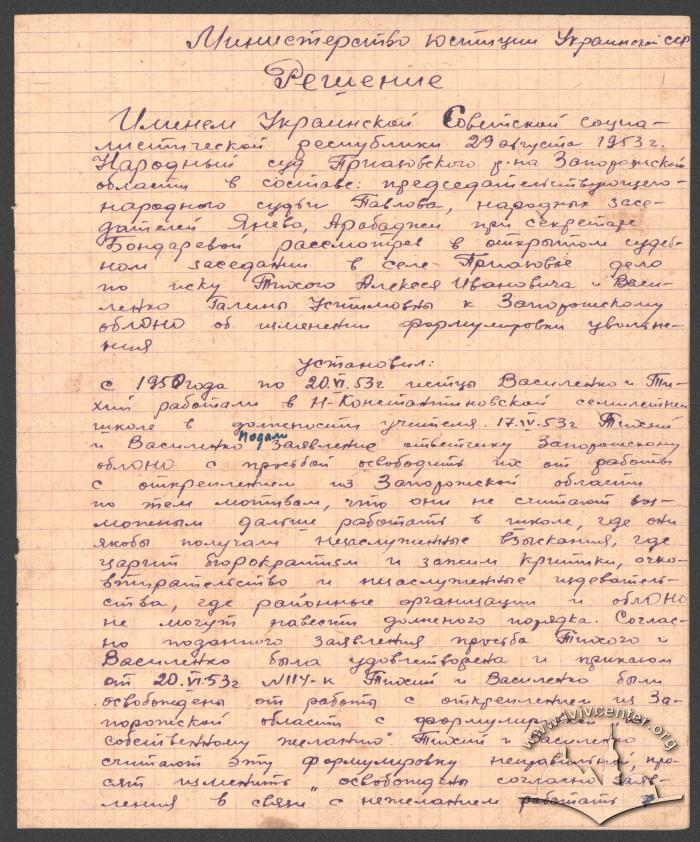 Министерство юстиции Украинской ССР
Решение
Именем Украинской Советской социа-
листической республики 29 августа 1953 г.
Народный суд Приазовского р-на Запорожской
области в составе: председательствующего-
народного судьи Павлова, народных засе-
дателей Янева, Арабаджи при секретаре
Бондаревой рассмотрев в открытом судеб-
ном заседании в селе Приазовье дело
по иску Тихого Алексея Ивановича и Васи-
ленко Галины Устимовны к Запорожскому
облОНО об изменении формулировки увольне-
ния
установил:
с 1950 года по 20.VI.53г истцы Василенко и Ти-
хий работали в Н-Константиновской семилетней
школе в должности учителя. 17.IV.53г Тихий
подали
и Василенко заявление ответчику Запорожскому
облОНО с просьбой освободить их от работы
с откреплением из Запорожской области
по тем мотивам, что они не считают воз-
можным дальше работать в школе, где они
якобы получали незаслуженные взыскания, где
царит бюрократизм и зажим критики, очко-
втирательство и незаслуженные издеватель-
ства, где районные организации и облОНО
не могут навести должного порядка. Соглас-
но поданного заявления просьба Тихого и
Василенко была удовлетворена и приказом
от 20.VI.53г N114-к Тихий и Василенко были
освобождены от работы с откреплением из За-
порожской области с формулировкой „по
собственному желанию". Тихий и Василенко
считают эту формулировку неправильной, про-
сят изменить „освобождены согласно заяв-
ления в связи с нежеланием работать в
www.lvivcenter.org